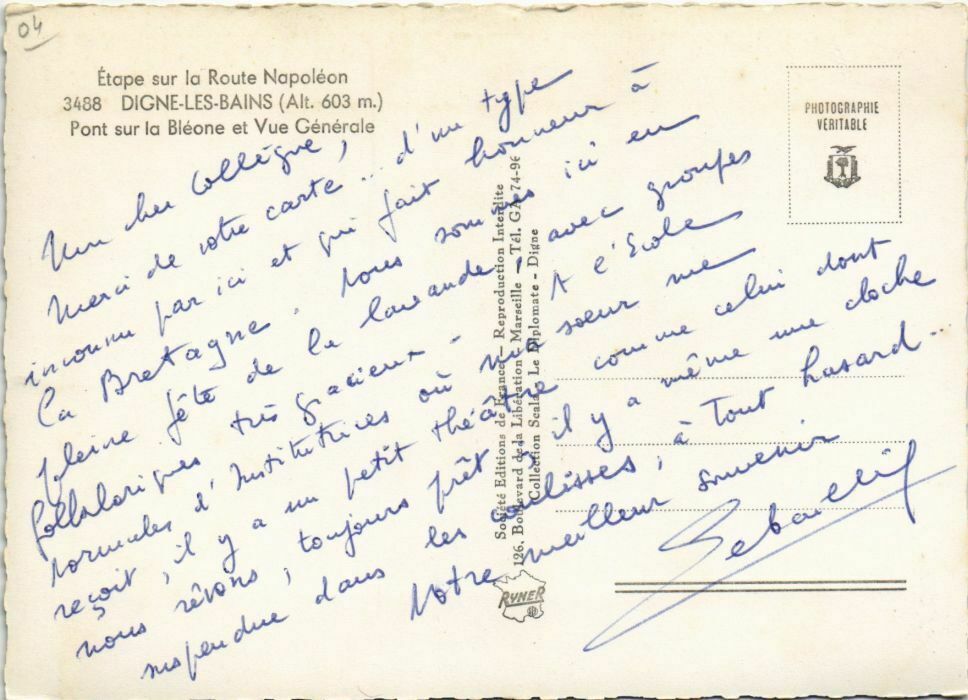 04
Étape sur la Route Napoléon
3488 DIGNE-LES-BAINS (Alt. 603 m.)
Pont sur la Bléone et Vue Générale
PHOTOGRAPHIE
VÉRITABLE
Mon cher Collègue,
Merci de votre carte... d'un type
inconnu par ici et qui fait honneur à
la Bretagne. Nous sommes ici en
pleine fête de la lavande, avec groupes
folkloriques très gracieux. A l'Ecole
Normale d'Institutrices où ma soeur me
reçoit, il y a un petit théâtre comme celui dont
nous rêvons, toujours prêt, il y a même une cloche
suspendue dans les coulisses, à tout hasard...
Notre meilleur souvenir
Société Editions de France - Reproduction Interdite
126, Boulevard de la Libération - Marseille - Tél. GA 74-96
Collection Scala Le Diplomate - Digne
RYNER